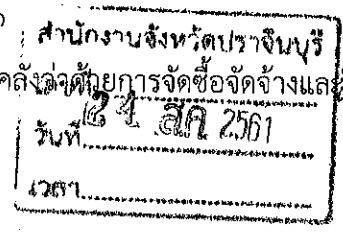 สำนักงานจังหวัดปราจีนบุรี
คลังว่าด้วยการจัดซื้อจัดจ้างและ
วันที่ 24 สค 2561
เวลา